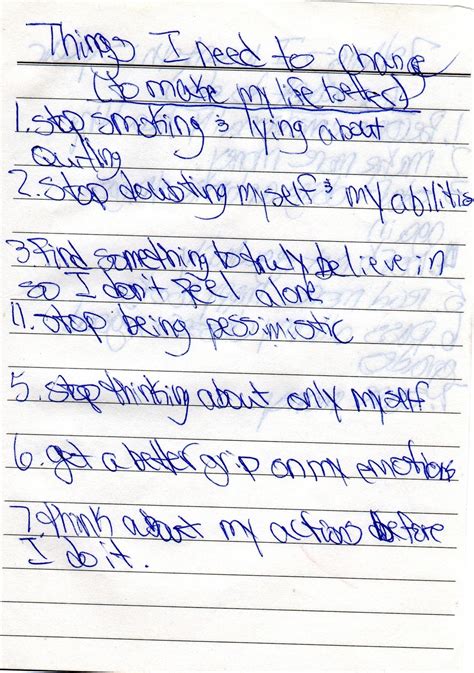 Things I need to change
(to make my life better)
1. stop smoking & lying about
quitting
2. stop doubting myself & my abilities
3. find something to truly believe in
so I don't feel alone
11. stop being pessimistic
5. stop thinking about only myself
6. get a better grip on my emotions
7. think about my actions before
I do it.